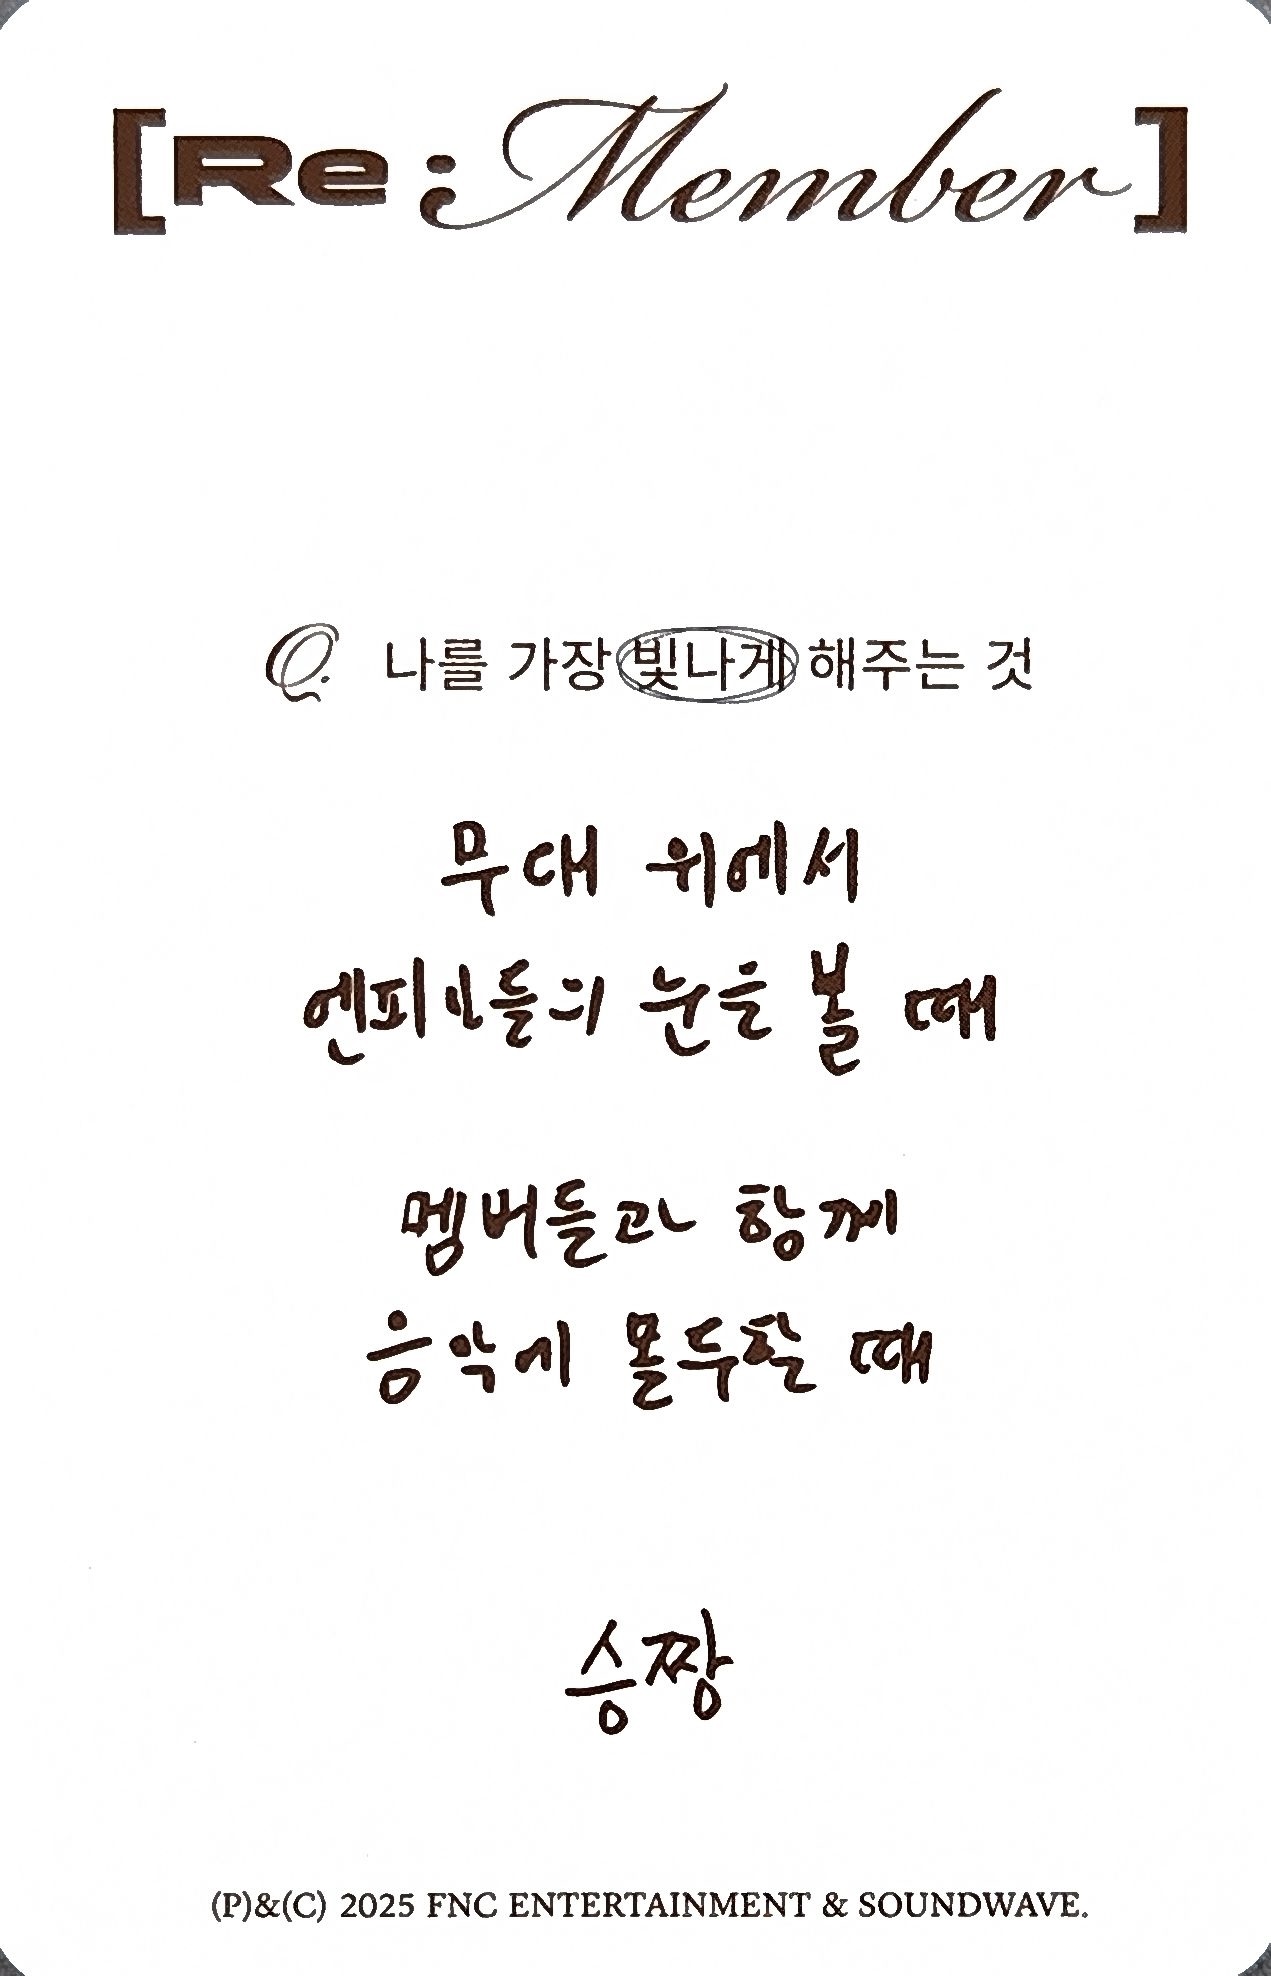 [Re;Member]
Q. 나를 가장 빛나게 해주는 것
무대 위에서
엔피아들의 눈을 볼 때
멤버들과 함께
음악에 몰두할 때
승짱
(P)&(C) 2025 FNC ENTERTAINMENT & SOUNDWAVE.